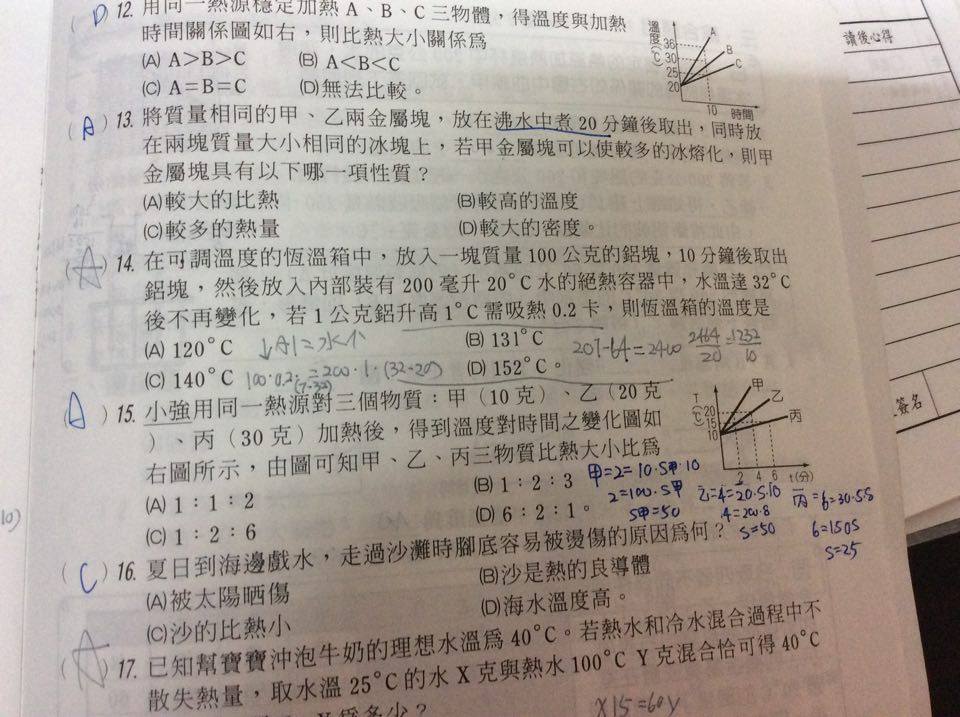 D
12. 用同一熱源穩定加熱 A、B、C 三物體，得溫度與加熱
時間關係圖如右，則比熱大小關係為
(A) A＞B＞C (B) A＜B＜C
(C) A＝B＝C (D)無法比較。
溫度(℃)
36
30
25
20
A
B
C
10 時間
(A) 13. 將質量相同的甲、乙兩金屬塊，放在沸水中煮 20 分鐘後取出，同時放
在兩塊質量大小相同的冰塊上，若甲金屬塊可以使較多的冰熔化，則甲
金屬塊具有以下哪一項性質？
(A)較大的比熱 (B)較高的溫度
(C)較多的熱量 (D)較大的密度。
(A) 14. 在可調溫度的恆溫箱中，放入一塊質量 100 公克的鋁塊，10 分鐘後取出
鋁塊，然後放入內部裝有 200 毫升 20°C 水的絕熱容器中，水溫達 32°C
後不再變化，若 1 公克鋁升高 1°C 需吸熱 0.2 卡，則恆溫箱的溫度是
(A) 120°C (B) 131°C
(C) 140°C (D) 152°C。
↓Al=水↑
100·0.2·(T-32)=200·1·(32-20)
20T-64=2400
2464/20=1232/10
) 15. 小強用同一熱源對三個物質：甲（10 克）、乙（20 克
）、丙（30 克）加熱後，得到溫度對時間之變化圖如
右圖所示，由圖可知甲、乙、丙三物質比熱大小比為
(A) 1：1：2 (B) 1：2：3
(C) 1：2：6 (D) 6：2：1。
T(℃)
20
15
10
甲
乙
丙
2 4 6 t(分)
甲=2=10·S甲·10
2=100·S甲
S甲=50
乙=4=20·S·10
S=50
丙=6=30·5S
6=150S
S=25
(C) 16. 夏日到海邊戲水，走過沙灘時腳底容易被燙傷的原因為何？
(A)被太陽晒傷 (B)沙是熱的良導體
(C)沙的比熱小 (D)海水溫度高。
(A) 17. 已知幫寶寶沖泡牛奶的理想水溫為 40°C。若熱水和冷水混合過程中不
散失熱量，取水溫 25°C 的水 X 克與熱水 100°C Y 克混合恰可得 40°C
為多少？
X15=60Y
讀後心得
簽名
10)